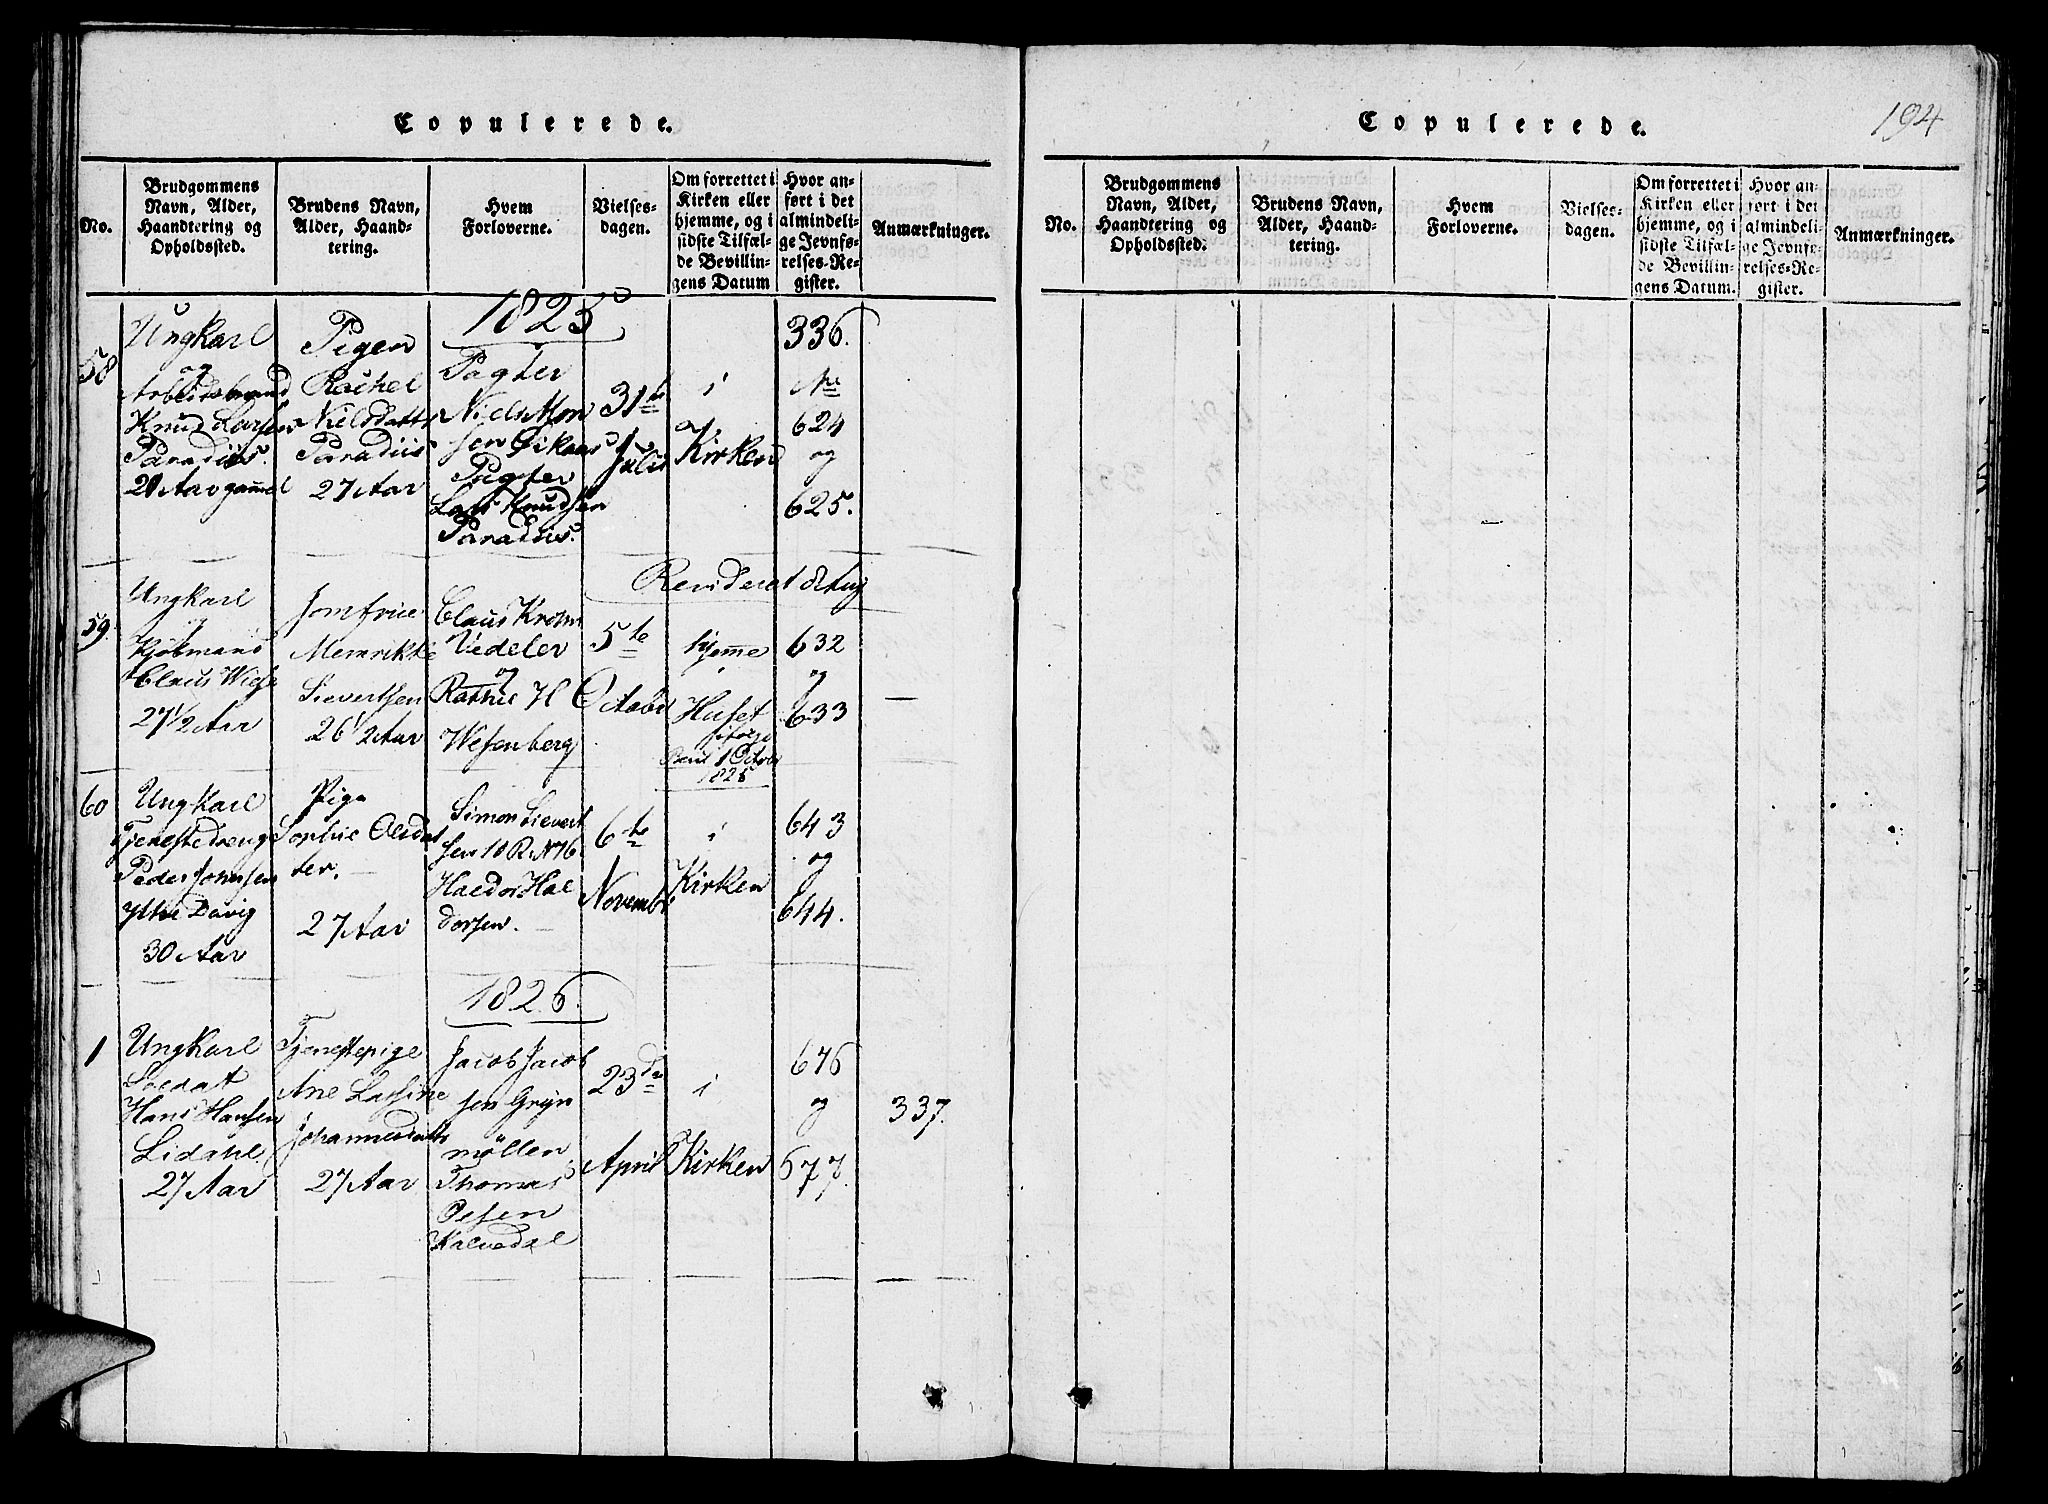 Copulerede.
No.
Brudgommens
Navn, Alder,
Haandtering og
Opholdssted.
Brudens Navn,
Alder, Haand-
tering.
Hvem
Forloverne.
Vielses-
dagen.
Om forrettet i
Kirken eller
hjemme, og i
sidste Tilfæl-
de Bevillin-
gens Datum
Hvor an-
ført i det
almindeli-
ge Jevnfø-
relses-Re-
gister.
Anmærkninger.
1825
58
Ungkarl
og
Arbeidsmand
Knud Larsen
Paradiis.
20 Aar gammel
Pigen
Rachel
Nielsdatter
Paradiis
27 Aar
Pagter
Niels Mon
sen
Pagter
Lars Knudsen
Paradiis.
31te
Julii
i
Kirken
336.
No
624
og
625.
Revideret
59.
Ungkarl
Kjøbmand
Claus Wiese
27 1/2 Aar
Jomfrue
Memrikke
Sievertsen
26 1/2 Aar
Claus Krohn
Vedeler
og
H
Wesenberg
5te
Octobr
hjemme
i
Huset
ifølge
Bevil 1 Octobr
1825
632
og
633
60
Ungkarl
Tjenestedreng
Peder Johnsen
30 Aar
Pige
Sophie Olsdat
ter.
27 Aar
Simon Sievert
sen 10 R. N 76
Haldor Hal
dorsen.
6te
Novembr
i
Kirken
643
og
644.
1826.
1
Ungkarl
Soldat
Hans Hansen
Lidahl
27 Aar
Tjenestepige
Ane Lassine
Johannesdatter
27 Aar
Jacob Jacob
sen Gryn
møllen
Thomas
Olsen
Kalvedal
23de
April
i
Kirken
676
og
677.
337.
Copulerede.
194
No.
Brudgommens
Navn, Alder,
Haandtering og
Opholdssted.
Brudens Navn,
Alder, Haand-
tering.
Hvem
Forloverne.
Vielses-
dagen.
Om forrettet i
Kirken eller
hjemme, og i
sidste Tilfæl-
de Bevillin-
gens Datum.
Hvor an-
ført i det
almindeli-
ge Jevnfø-
relses-Re-
gister.
Anmærkninger.